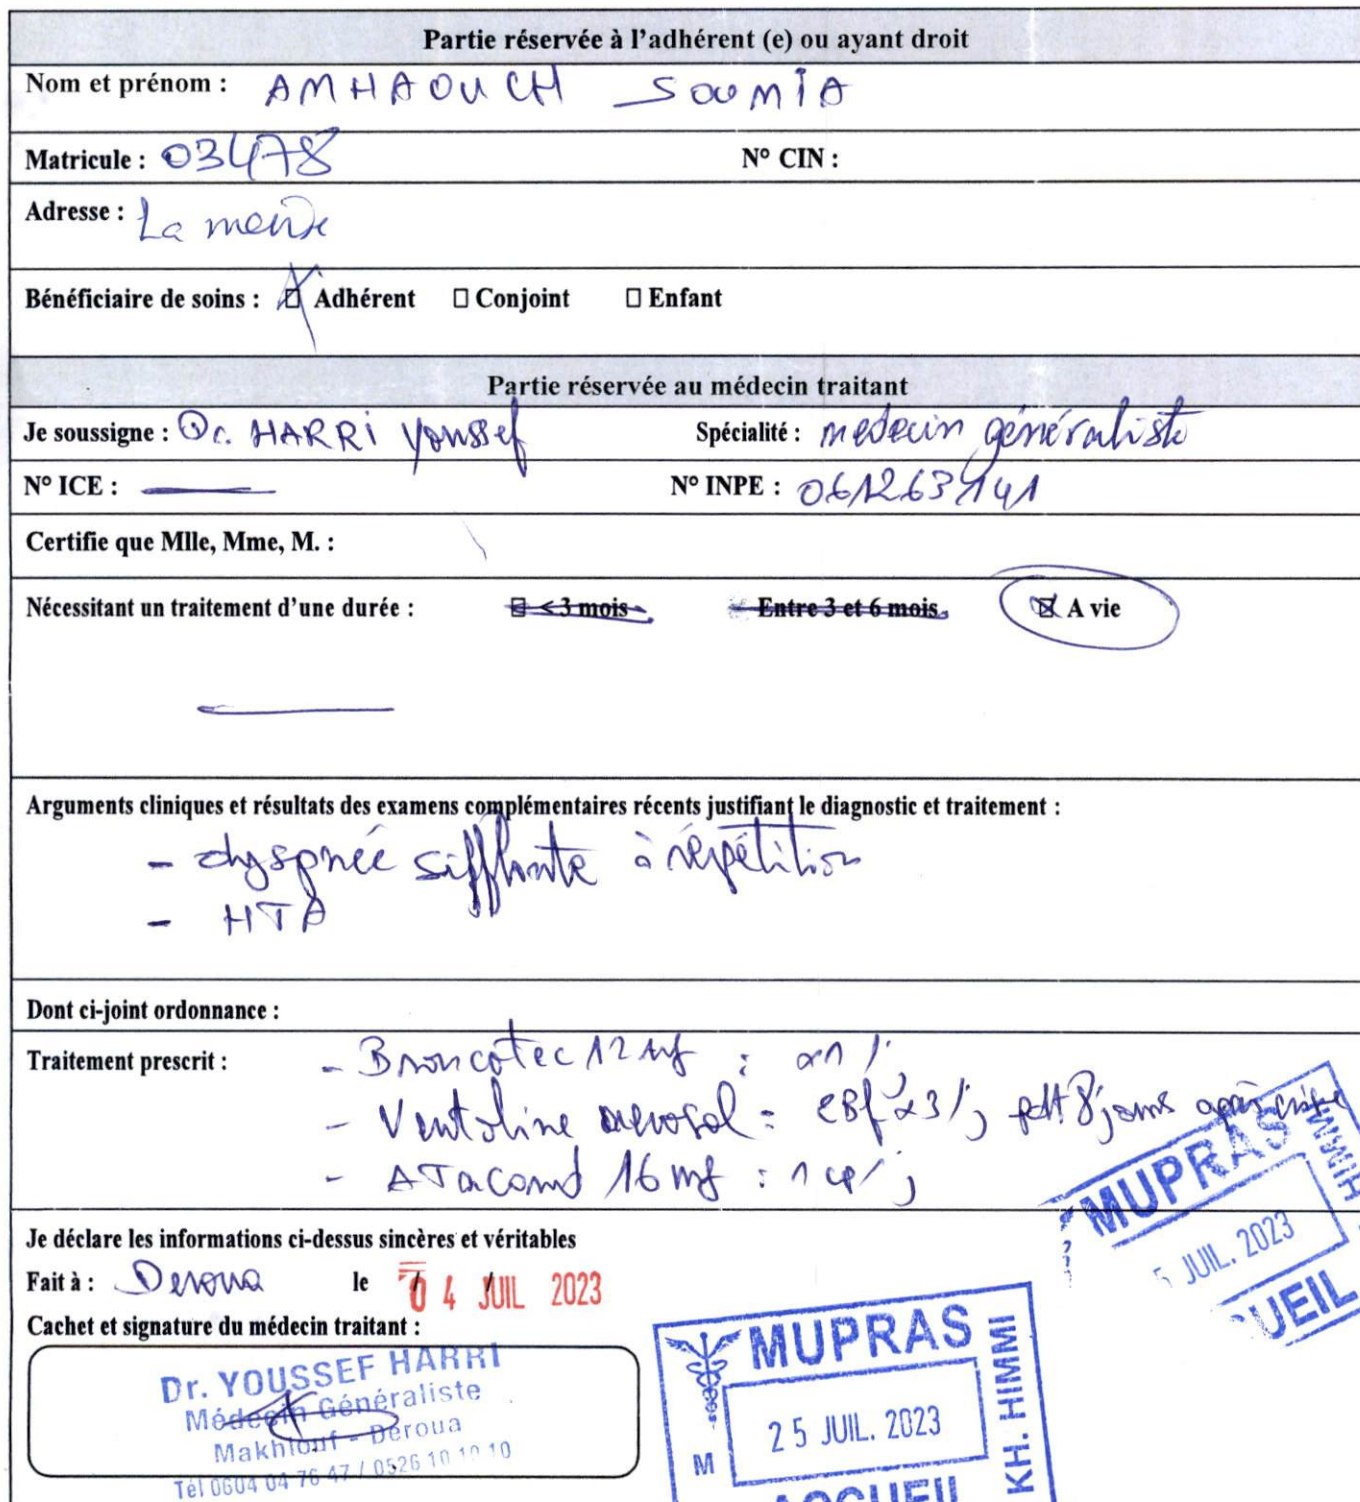 Partie réservée à l'adhérent (e) ou ayant droit
Nom et prénom : AMHAOUCH SOUMIA
Matricule : 03478 N° CIN :
Adresse : La
Bénéficiaire de soins : ☒ Adhérent ☐ Conjoint ☐ Enfant
Partie réservée au médecin traitant
Je soussigne : Dr. HARRI Youssef Spécialité : medecin généraliste
N° ICE : N° INPE : 061263141
Certifie que Mlle, Mme, M. :
Nécessitant un traitement d'une durée : ☐ < 3 mois Entre 3 et 6 mois ☒ A vie
Arguments cliniques et résultats des examens complémentaires récents justifiant le diagnostic et traitement :
- dyspnée sifflante à répétition
- HTA
Dont ci-joint ordonnance :
Traitement prescrit : - Broncotec 12 : x1 /j
- Ventoline aerosol = 2Bf x3/j pdt 8 jours après crise
- ATacand 16 mg : 1 cp/j
Je déclare les informations ci-dessus sincères et véritables
Fait à : Deroua le 04 JUIL 2023
Cachet et signature du médecin traitant :
Dr. YOUSSEF HARRI
Médecin Généraliste
Makhlouf - Deroua
Tél 0604 04 76 47 / 0526 10 10 10
MUPRAS
25 JUIL. 2023
ACCUEIL
M
KH. HIMMI
MUPRAS
5 JUIL. 2023
UEIL
HIMMI